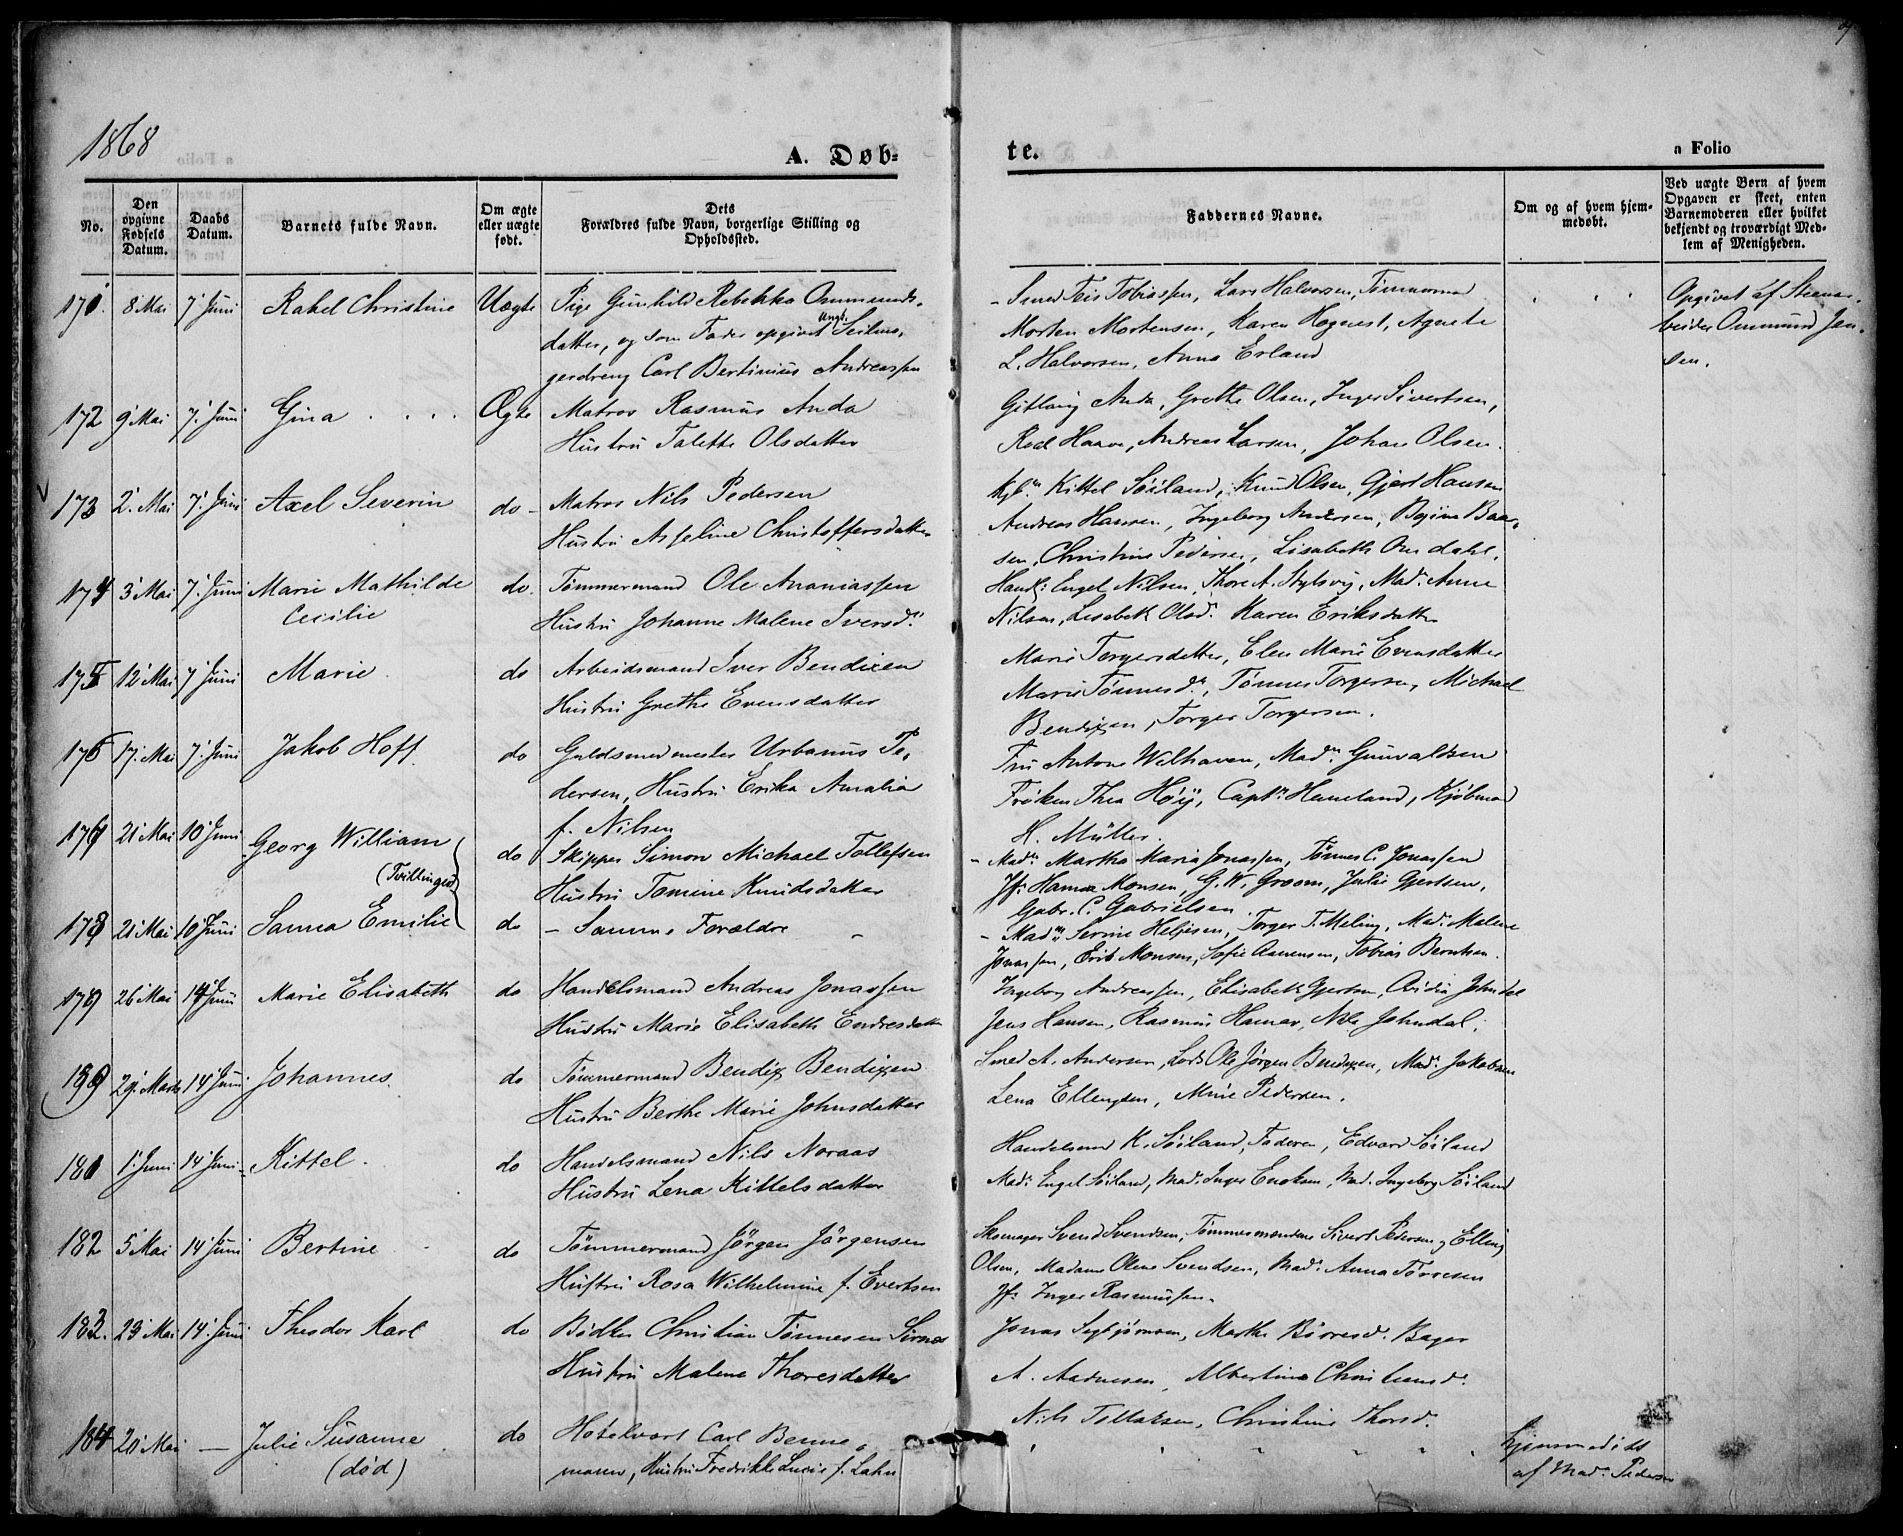 1868
A. Døb-
te.
a Folio
No.
Den opgivne Fødsels Datum.
Daabs Datum.
Barnets fulde Navn.
Om ægte eller uægte født.
Dets Forældres fulde Navn, borgerlige Stilling og Opholdssted.
Faddernes Navne.
Om og af hvem hjemmedøbt.
Ved uægte Børn af hvem Opgaven er skeet, enten Barnemoderen eller hvilket bekjendt og troværdigt Medlem af Menigheden.
171. 8 Mai 7' Juni Rakel Christine Uægte Pige Gunhild Rebekka Ommunds-
datter, og som Fader opgivet Ungk.
gerdreng Carl Bertinius Andreassen
- Smed Teis Tobiassen, Lars Halvorsen, Tømmermd
Morten Mortensen, Karen Hognest, Agnete
L. Halvorsen, Anna Erland
Opgivet af Steenar-
beider Ommund Jen-
sen.
172 9' Mai 7' Juni Gina Ægte Matros Rasmus Anda
Hustru Talette Olsdatter
Anda, Grethe Olsen, Inger Sivertsen,
Haave, Andreas Larsen, Johan Olsen.
173 2' Mai 7' Juni Axel Severin do - Matros Nils Pedersen
Hustru Asseline Christoffersdatter
Kittel Söiland, Knud Olsen, Gjert Hansen
Andreas Hansen, Ingeborg Andersen, Bas-
sen, Christine Pedersen, Lisabeth Omdahl,
174 3' Mai 7' Juni Marie Mathilde
Cecilie
do. Tømmermand Ole Ananiassen
Hustru Johanne Malene Iversd.
Handl: Engel Nilsen, Thore A. Stylsvig, Mad. Anne
Nilsen, Lisabeth Olsd. Karen Eriksdatter
175 12' Mai 7' Juni Marie do Arbeidsmand Iver Bendixen
Hustru Grethe Evensdatter
Marie Torgersdatter, Elen Marie Evensdatter
Marie Tönnesd., Tönnes Torgersen, Michael
Bendixen, Torger Torgersen.
176 17. Mai 7' Juni Jakob Hoff do Guldsmedmester Urbanus Pe-
dersen, Hustru Erika Amalia
f. Nilsen
Fru Antone Welhaven, Mad. Gunvaldsen
Frøken Thea Høy, Capt. Hameland, Kjöbmd
H. Müller.
177 21' Mai 10' Juni Georg William
(Tvillinger)
do Skipper Simon Michael Tollefsen
Hustru Tomine Knudsdatter
- Mad. Martha Maria Jonassen, Tönnes C. Jonassen
Jf. Hanna Monsen, G. W. Groom, Julie Gjertsen,
Gabr. C. Gabrielsen.
178 21 Mai 10' Juni Sanna Emilie do - Samme Forældre -
- Mad. Serine Heljesen, Torger T. Meling, Mad. Malene
Jonassen, Erik Monsen, Sofie Aanensen, Tobias Berntsen.
179 26 Mai 14 Juni Marie Elisabeth do Handelsmand Andreas Jonassen
Hustru Marie Elisabeth Endresdatter
Ingeborg Andreassen, Elisabeth Gjertsen, Johndal
Jens Hansen, Rasmus Hamar, Johndal.
180 29' Marts 14' Juni Johannes do Tømmermand Bendix Bendixen
Hustru Berthe Marie Johnsdatter
Smed A. Andersen, Lods Ole Jörgen Bendixen, Mad. Jakobsen
Lena Ellengsen, Mine Pedersen.
181 1' Juni 14' Juni Kittel. do Handelsmand Nils Noraas
Hustru Lena Kittelsdatter
Handelsmd K. Söiland, Faderen, Edvard Söiland
Mad. Engel Söiland, Mad. Inger Enoksen, Mad. Ingeborg Söiland
182 5 Mai 14' Juni Bertine do Tømmermand Jörgen Jörgensen
Hustru Rosa Wilhelmine f. Evertsen
Skomager Svend Svendsen, Tømmermændene Sivert Pedersen og Elling
Olsen, Madame Olene Svendsen, Mad. Anna Törresen
Jf. Inger Rasmussen.
183. 23 Mai 14' Juni Theodor Karl do Bødker Christian Tönnesen Sirnes
Hustru Malene Thoresdatter
Jonas Sigbjörnsen, Marthe Börresd. Bager
A. Aadnesen, Albertine Christiansd.
Nils Tollaksen, Christine Thorsd.
184 20 Mai — Julie Susanne
(död)
do Hotelvært Carl Benne-
mann, Hustru Fredrikke Lucie f. Lahn
hjemmedöbt
af Mad. Pedersen